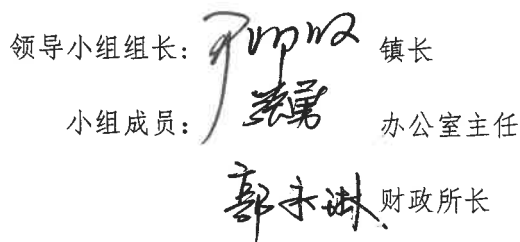 领导小组组长： 镇长
小组成员： 办公室主任
郭永 财政所长